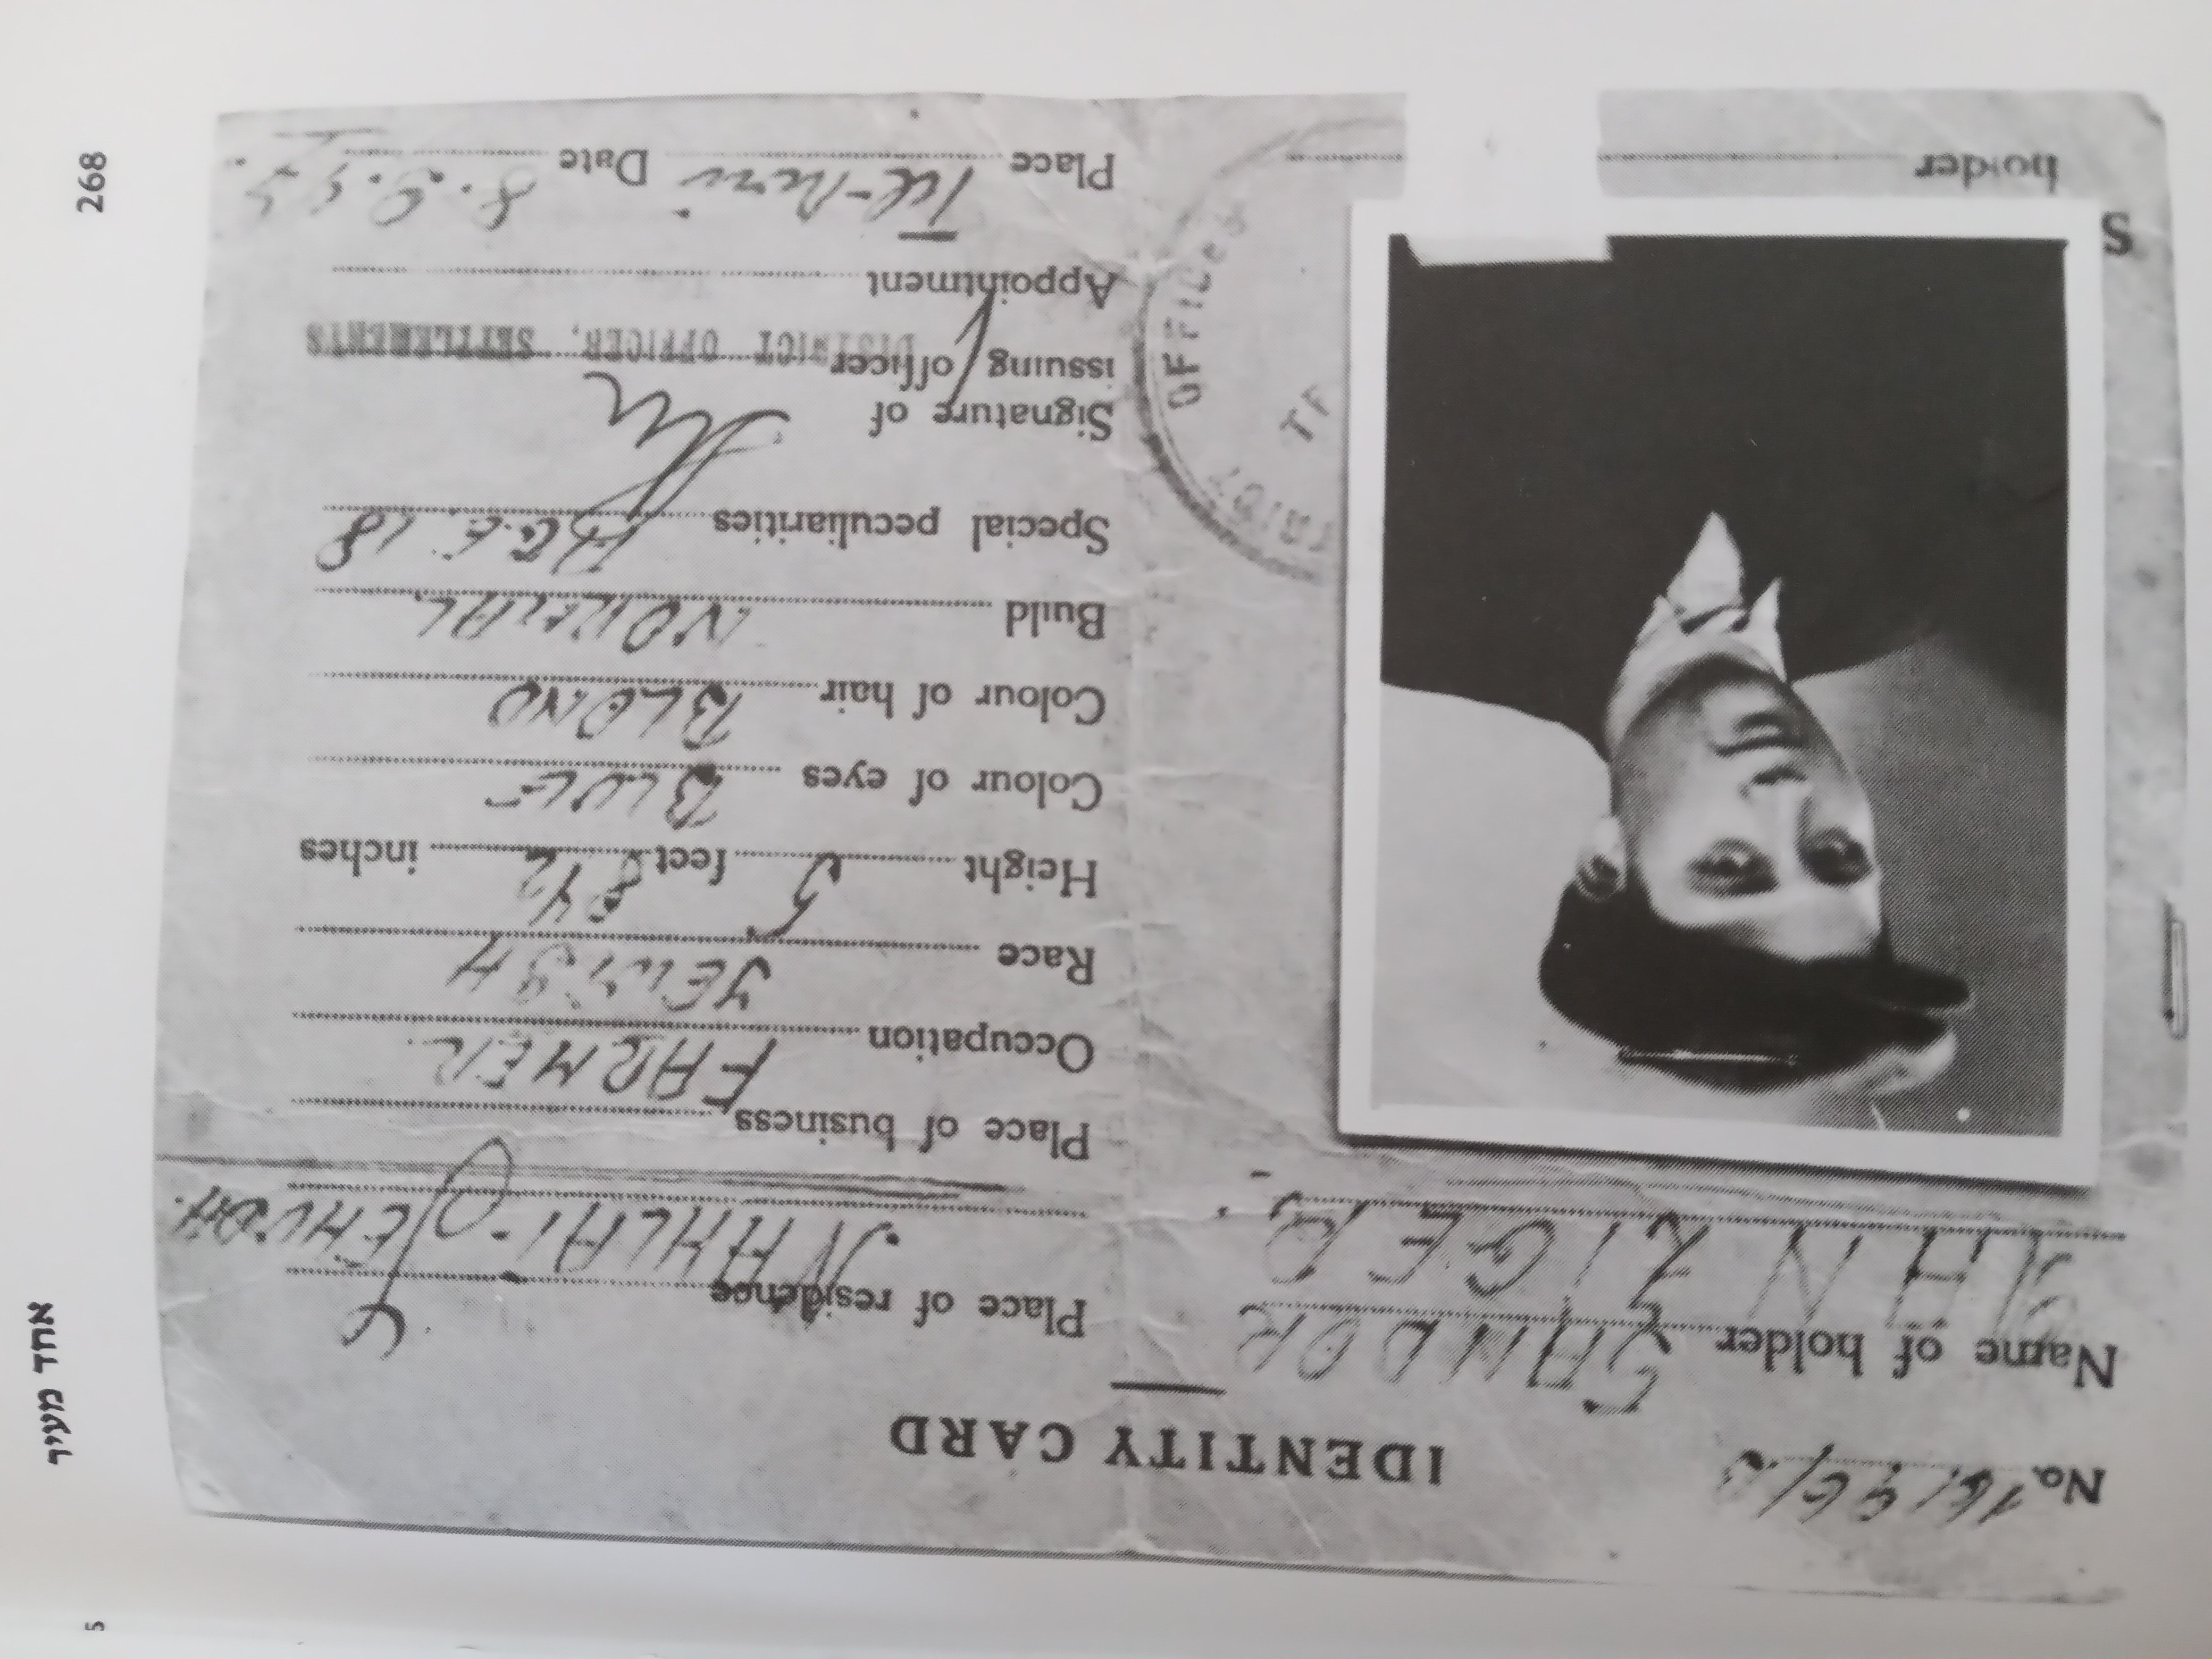 No. 16196/B
IDENTITY CARD
Name of holder SANDOR
DANZIGER.
Place of residence
NAHLAT-JEHUDA.
Place of business
Occupation FARMER.
Race JEWISH
Height 5 feet 8 1/2 inches
Colour of eyes BLUE
Colour of hair BLOND
Build NORMAL.
Special peculiarities AGE 18
Signature of
issuing officer
DISTRICT OFFICER, SETTLEMENTS
Appointment
Place Tel-Aviv Date 8.9.42.
S
holder
OFFICES
אחד מעיר
268